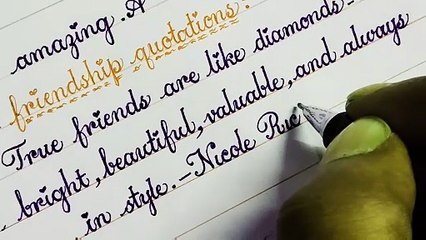 amazing. A
friendship quotations.
True friends are like diamonds-
bright, beautiful, valuable, and always
in style.-Nicole Ric